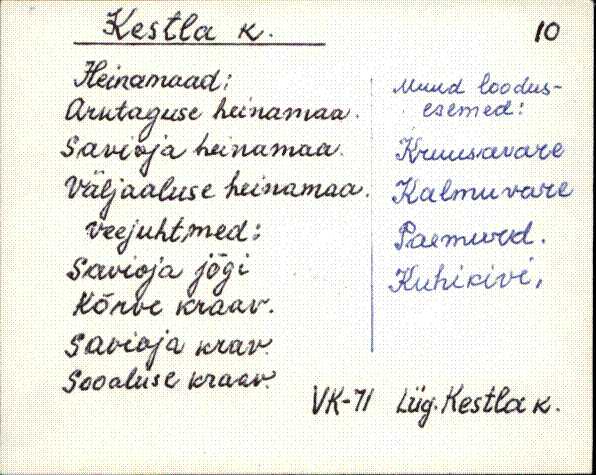 Kestla k.
10
Heinamaad:
Arutaguse heinamaa.
Savioja heinamaa.
Väljaaluse heinamaa.
Veejuhtmed:
Savioja jõgi
Kõrve kraav.
Savioja krav.
Sooaluse kraav.
Muud loodus-
esemed:
Kruusavare
Kalmuvare
Paemurd.
Kuhikivi,
VK-71 Lüg. Kestla k.